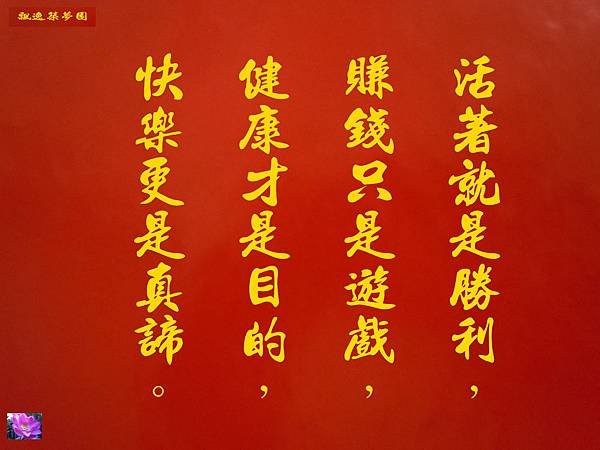 飄逸築夢園
活著就是勝利，
賺錢只是遊戲，
健康才是目的，
快樂更是真諦。